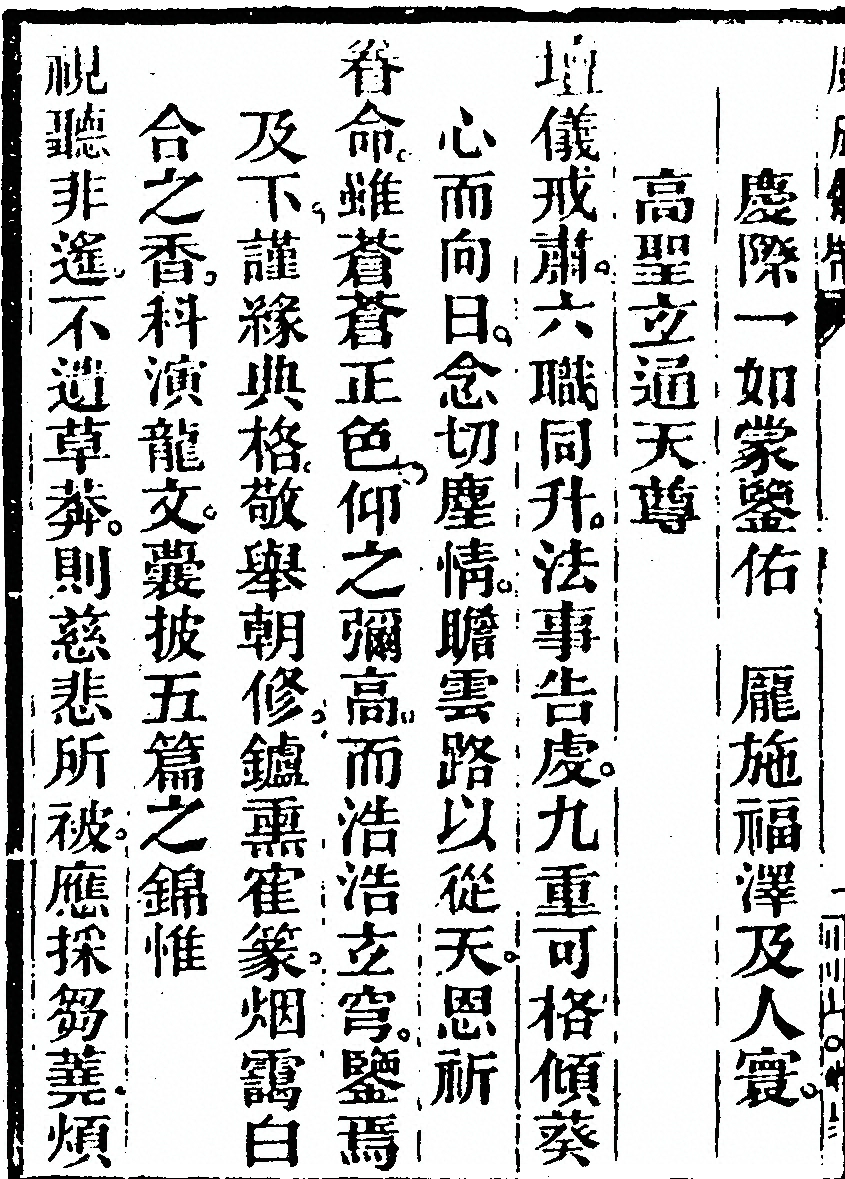 慶際一如蒙鑒佑　龎施福澤及人寰。
高聖立通天尊
壇儀戒肅。六職同升。法事告虔。九重可格傾葵
心而向日。念切塵情。瞻雲路以從天。恩祈
眷命。雖蒼蒼正色仰之彌高。而浩浩立穹。鑒焉
及下。謹緣典格。敬舉朝修。鑪熏寉篆。烟靄白
合之香。科演龍文。囊披五篇之錦惟
視聽非遙。不遺草莽。則慈悲所被。應採芻蕘。煩